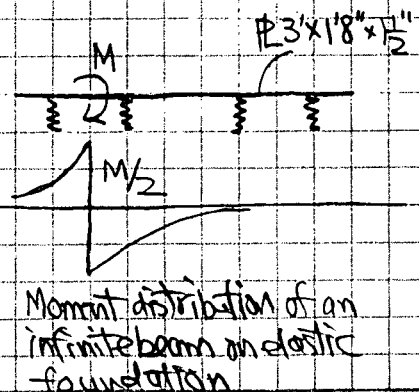 PL 3'x1'8"x1 1/2"
M
M/2
Moment distribution of an
infinite beam on elastic
foundation